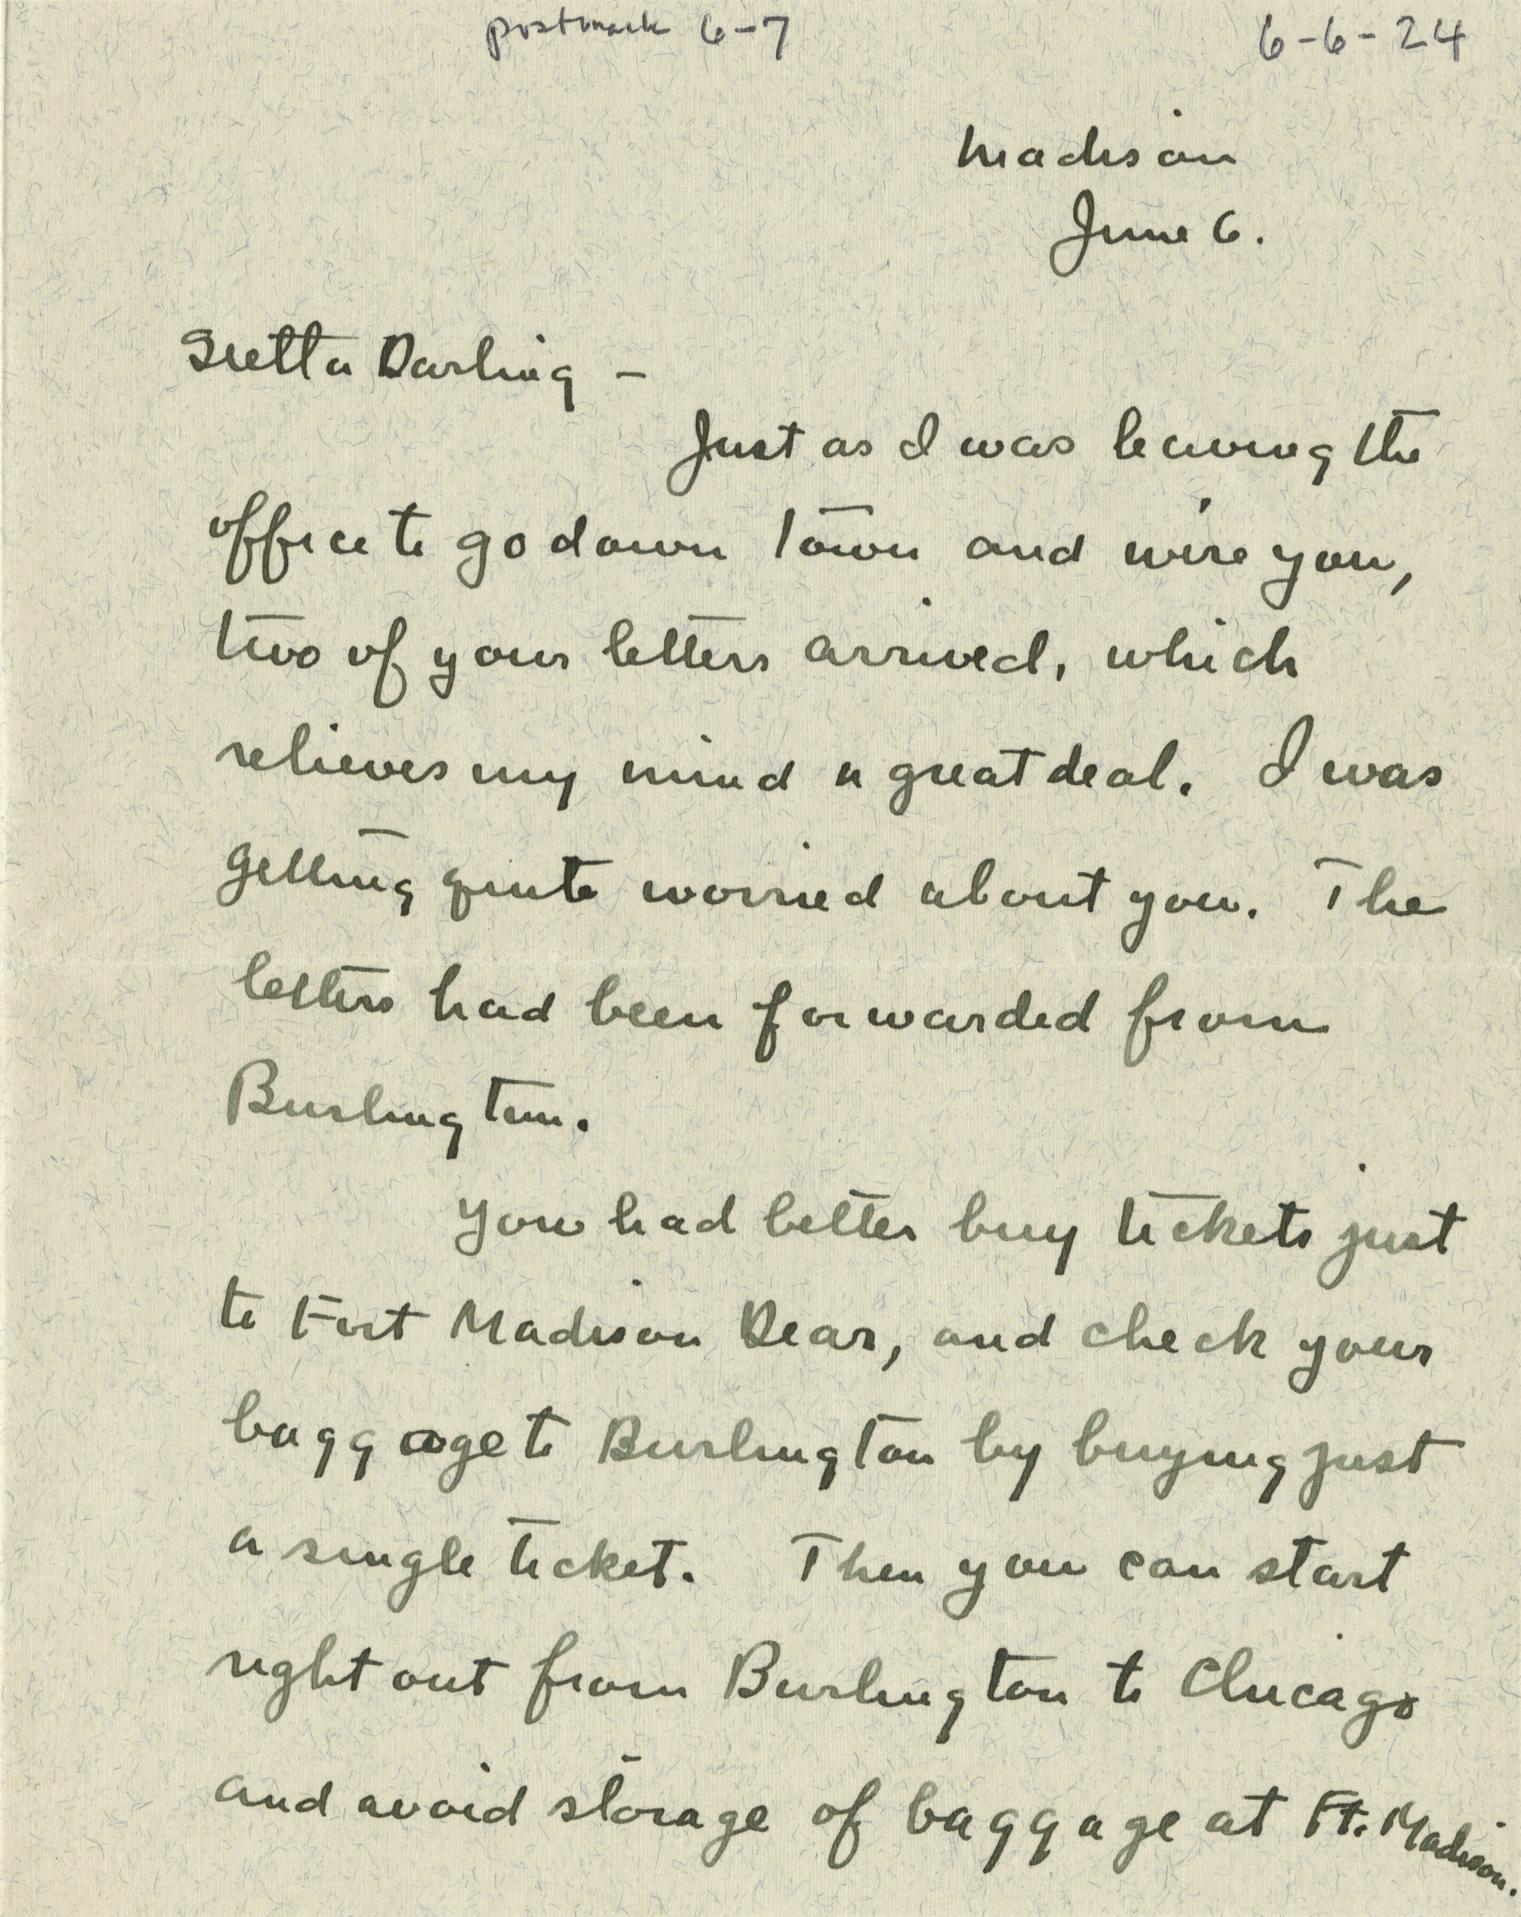 postmark 6-7 6-6-24
Madison
June 6.
Gretta Darling -
Just as I was leaving the
office to go down town and wire you,
two of your letters arrived, which
relieves my mind a great deal. I was
getting quite worried about you. The
letters had been forwarded from
Burlington.
You had better buy tickets just
to Fort Madison Dear, and check your
baggage to Burlington by buying just
a single ticket. Then you can start
right out from Burlington to Chicago
and avoid storage of baggage at Ft. Madison.